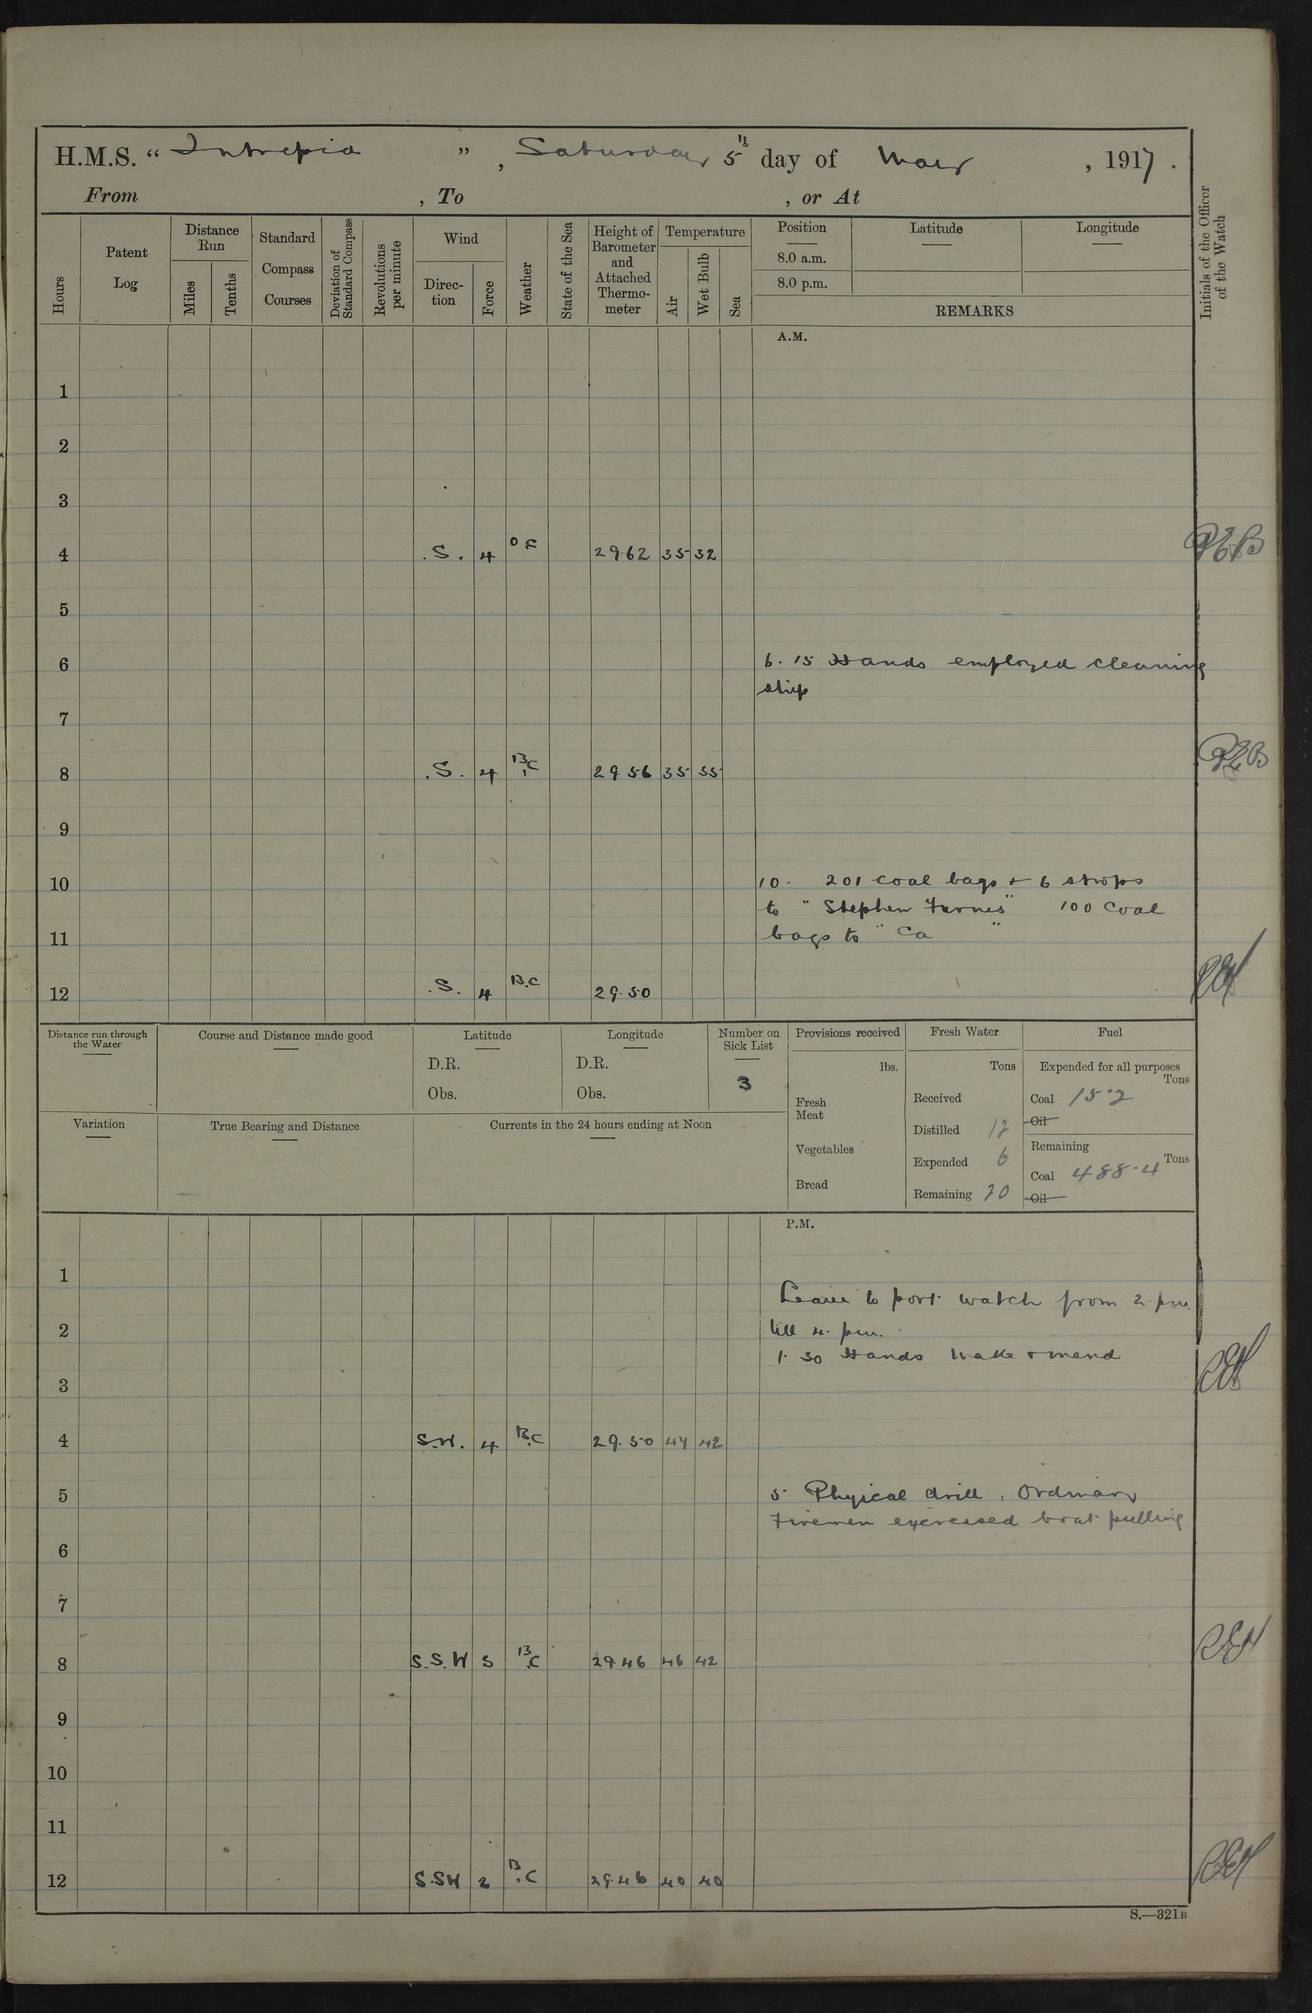 H.M.S. “ Intrepid ” , Saturday 5th day of May , 1917 .
From , To , or At
Hours
Patent Log
Distance Run
Miles
Tenths
Standard Compass Courses
Deviation of Standard Compass
Revolutions per minute
Wind
Direction
Force
Weather
State of the Sea
Height of Barometer and Attached Thermometer
Temperature
Air
Wet Bulb
Sea
Position
8.0 a.m.
8.0 p.m.
Latitude
Longitude
REMARKS
Initials of the Officer of the Watch
A.M.
1
2
3
4 .S. 4 O F 29.62 35 32
5
6 6.15 Hands employed cleaning
ship
7
8 .S. 4 B.C 29.56 35 35
9
10 10. 201 coal bags + 6 strops
to " Stephen Furnes" 100 Coal
11 bags to " Ca "
12 .S. 4 B.C 29.50
Distance run through the Water
Course and Distance made good
Latitude
D.R.
Obs.
Longitude
D.R.
Obs.
Number on Sick List
3
Variation
True Bearing and Distance
Currents in the 24 hours ending at Noon
Provisions received
lbs.
Fresh Meat
Vegetables
Bread
Fresh Water
Tons
Received
Distilled 12
Expended 6
Remaining 20
Fuel
Expended for all purposes
Tons
Coal 15.2
Oil
Remaining
Tons
Coal 488.4
Oil
P.M.
1
Leave to port watch from 2. pm
2 till 4. pm.
1.30 Hands make + mend
3
4 S.W. 4 B.C 29.50 44 42
5 5. Phyical drill, Ordinary
Firemen exercised boat pulling
6
7
8 S.S.W 3 B.C 29.46 46 42
9
10
11
12 S.SW 2 B.C 29.46 40 40
S.—321B